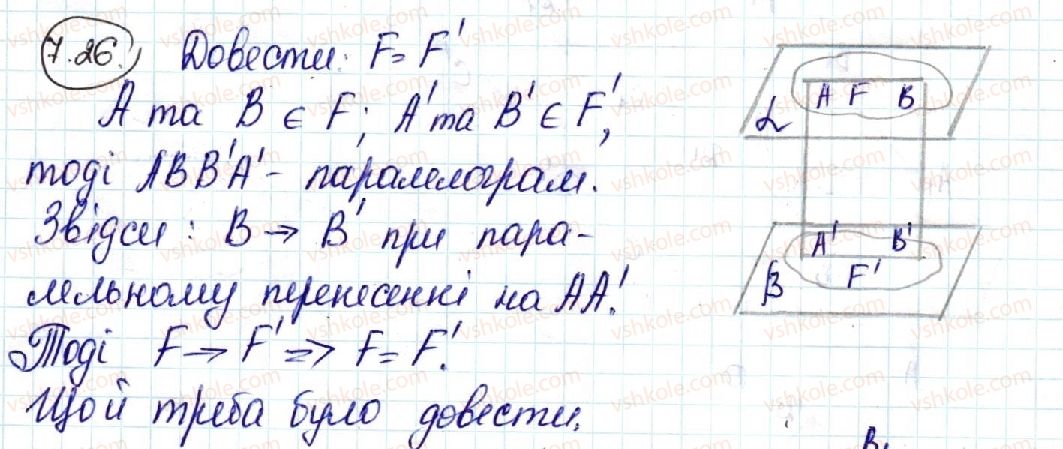 7.26. Довести: F = F'
А та В ∈ F; А' та В' ∈ F',
тоді АВВ'А' - паралелограм.
Звідси: В → В' при пара-
лельному перенесенні на АА'.
Тоді F → F' => F = F'.
Що й треба було довести.
A F B
α
A' B'
F'
β
B₁
vshkole.com